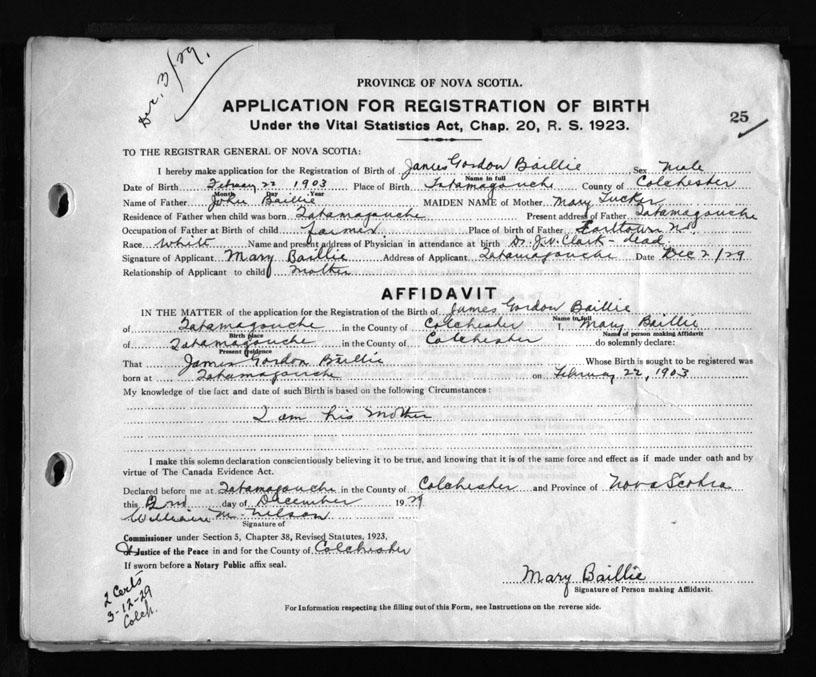 Dec. 3/29.
PROVINCE OF NOVA SCOTIA.
APPLICATION FOR REGISTRATION OF BIRTH
25
Under the Vital Statistics Act, Chap. 20, R. S. 1923.
TO THE REGISTRAR GENERAL OF NOVA SCOTIA:
I hereby make application for the Registration of Birth of James Gordon Baillie Sex Male
Name in full
Date of Birth February 22 1903 Place of Birth Tatamagouche County of Colchester
Month Day Year
Name of Father John Baillie MAIDEN NAME of Mother Mary Tucker
Residence of Father when child was born Tatamagouche Present address of Father Tatamagouche
Occupation of Father at Birth of child farmer Place of birth of Father Earltown N.S.
Race White Name and present address of Physician in attendance at birth Dr. J.W. Clark - dead
Signature of Applicant Mary Baillie Address of Applicant Tatamagouche Date Dec 2/29
Relationship of Applicant to child Mother
AFFIDAVIT
IN THE MATTER of the application for the Registration of the Birth of James Gordon Baillie
Name in full
of Tatamagouche in the County of Colchester I, Mary Baillie
Birth place Name of person making Affidavit
of Tatamagouche in the County of Colchester do solemnly declare:
Present residence
That James Gordon Baillie Whose Birth is sought to be registered was
born at Tatamagouche on February 22, 1903
My knowledge of the fact and date of such Birth is based on the following Circumstances:
I am his Mother
I make this solemn declaration conscientiously believing it to be true, and knowing that it is of the same force and effect as if made under oath and by
virtue of The Canada Evidence Act.
Declared before me at Tatamagouche in the County of Colchester and Province of Nova Scotia
this 2nd day of December 1929
William M. Nelson
Signature of
Commissioner under Section 5, Chapter 38, Revised Statutes, 1923,
Justice of the Peace in and for the County of Colchester
If sworn before a Notary Public affix seal.
Mary Baillie
Signature of Person making Affidavit.
2 Certs
3-12-29
Colch.
For Information respecting the filling out of this Form, see Instructions on the reverse side.